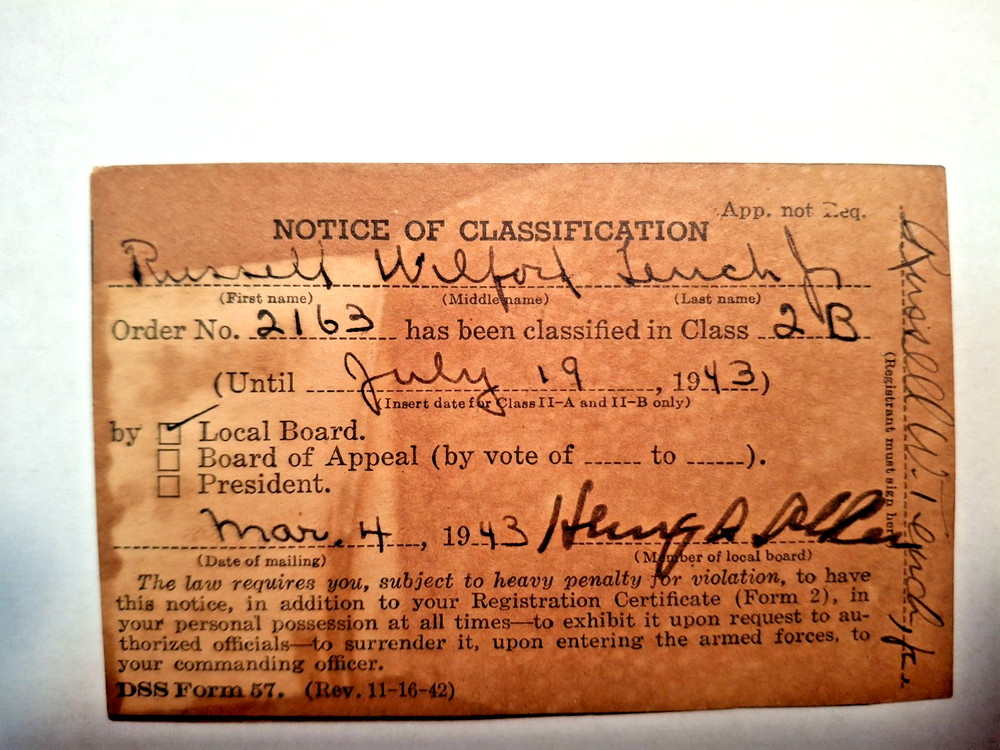 App. not Req.
NOTICE OF CLASSIFICATION
Russell Wilford Tench Jr
(First name) (Middle name) (Last name)
Order No. 2163 has been classified in Class 2 B
(Until July 19, 1943)
(Insert date for Class II-A and II-B only)
by Local Board.
Board of Appeal (by vote of ...... to ......).
President.
Mar. 4, 1943 Henry A
(Date of mailing) (Member of local board)
The law requires you, subject to heavy penalty for violation, to have
this notice, in addition to your Registration Certificate (Form 2), in
your personal possession at all times—to exhibit it upon request to au-
thorized officials—to surrender it, upon entering the armed forces, to
your commanding officer.
DSS Form 57. (Rev. 11-16-42)
Russell W. Tench, Jr.
(Registrant must sign here)